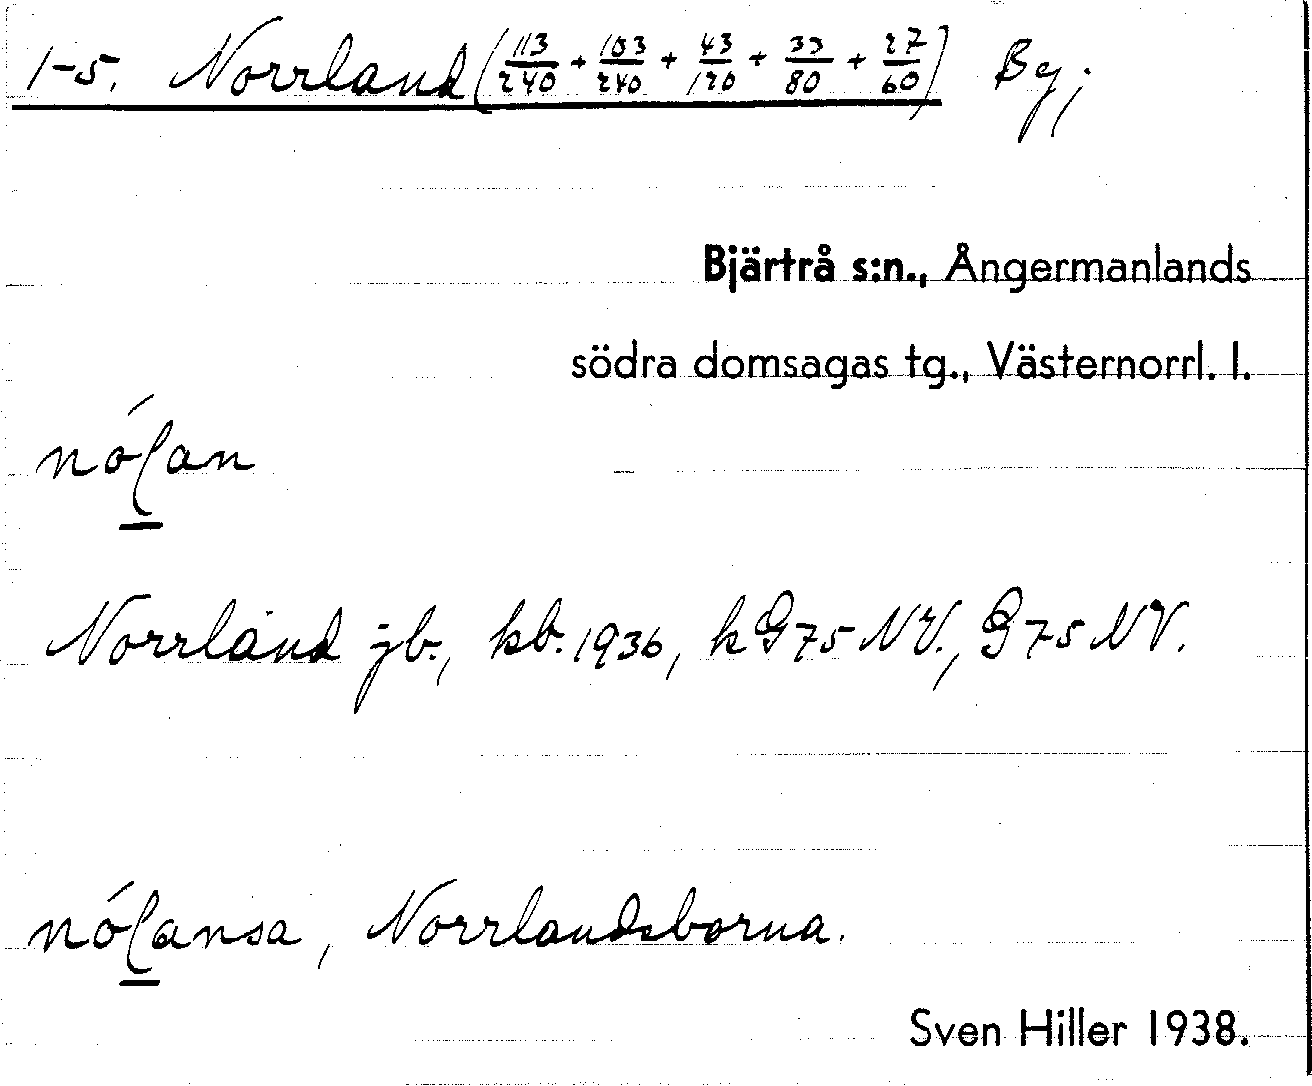 1-5. Norrland (113/240 + 103/240 + 43/120 + 33/80 + 27/60) By;
Bjärtrå s:n., Ångermanlands
södra domsagas tg., Västernorrl. l.
nóɭan
Norrland jb., kb. 1936, k G 75 NV., G 75 NV.
nóɭansa, Norrlandsborna.
Sven Hiller 1938.